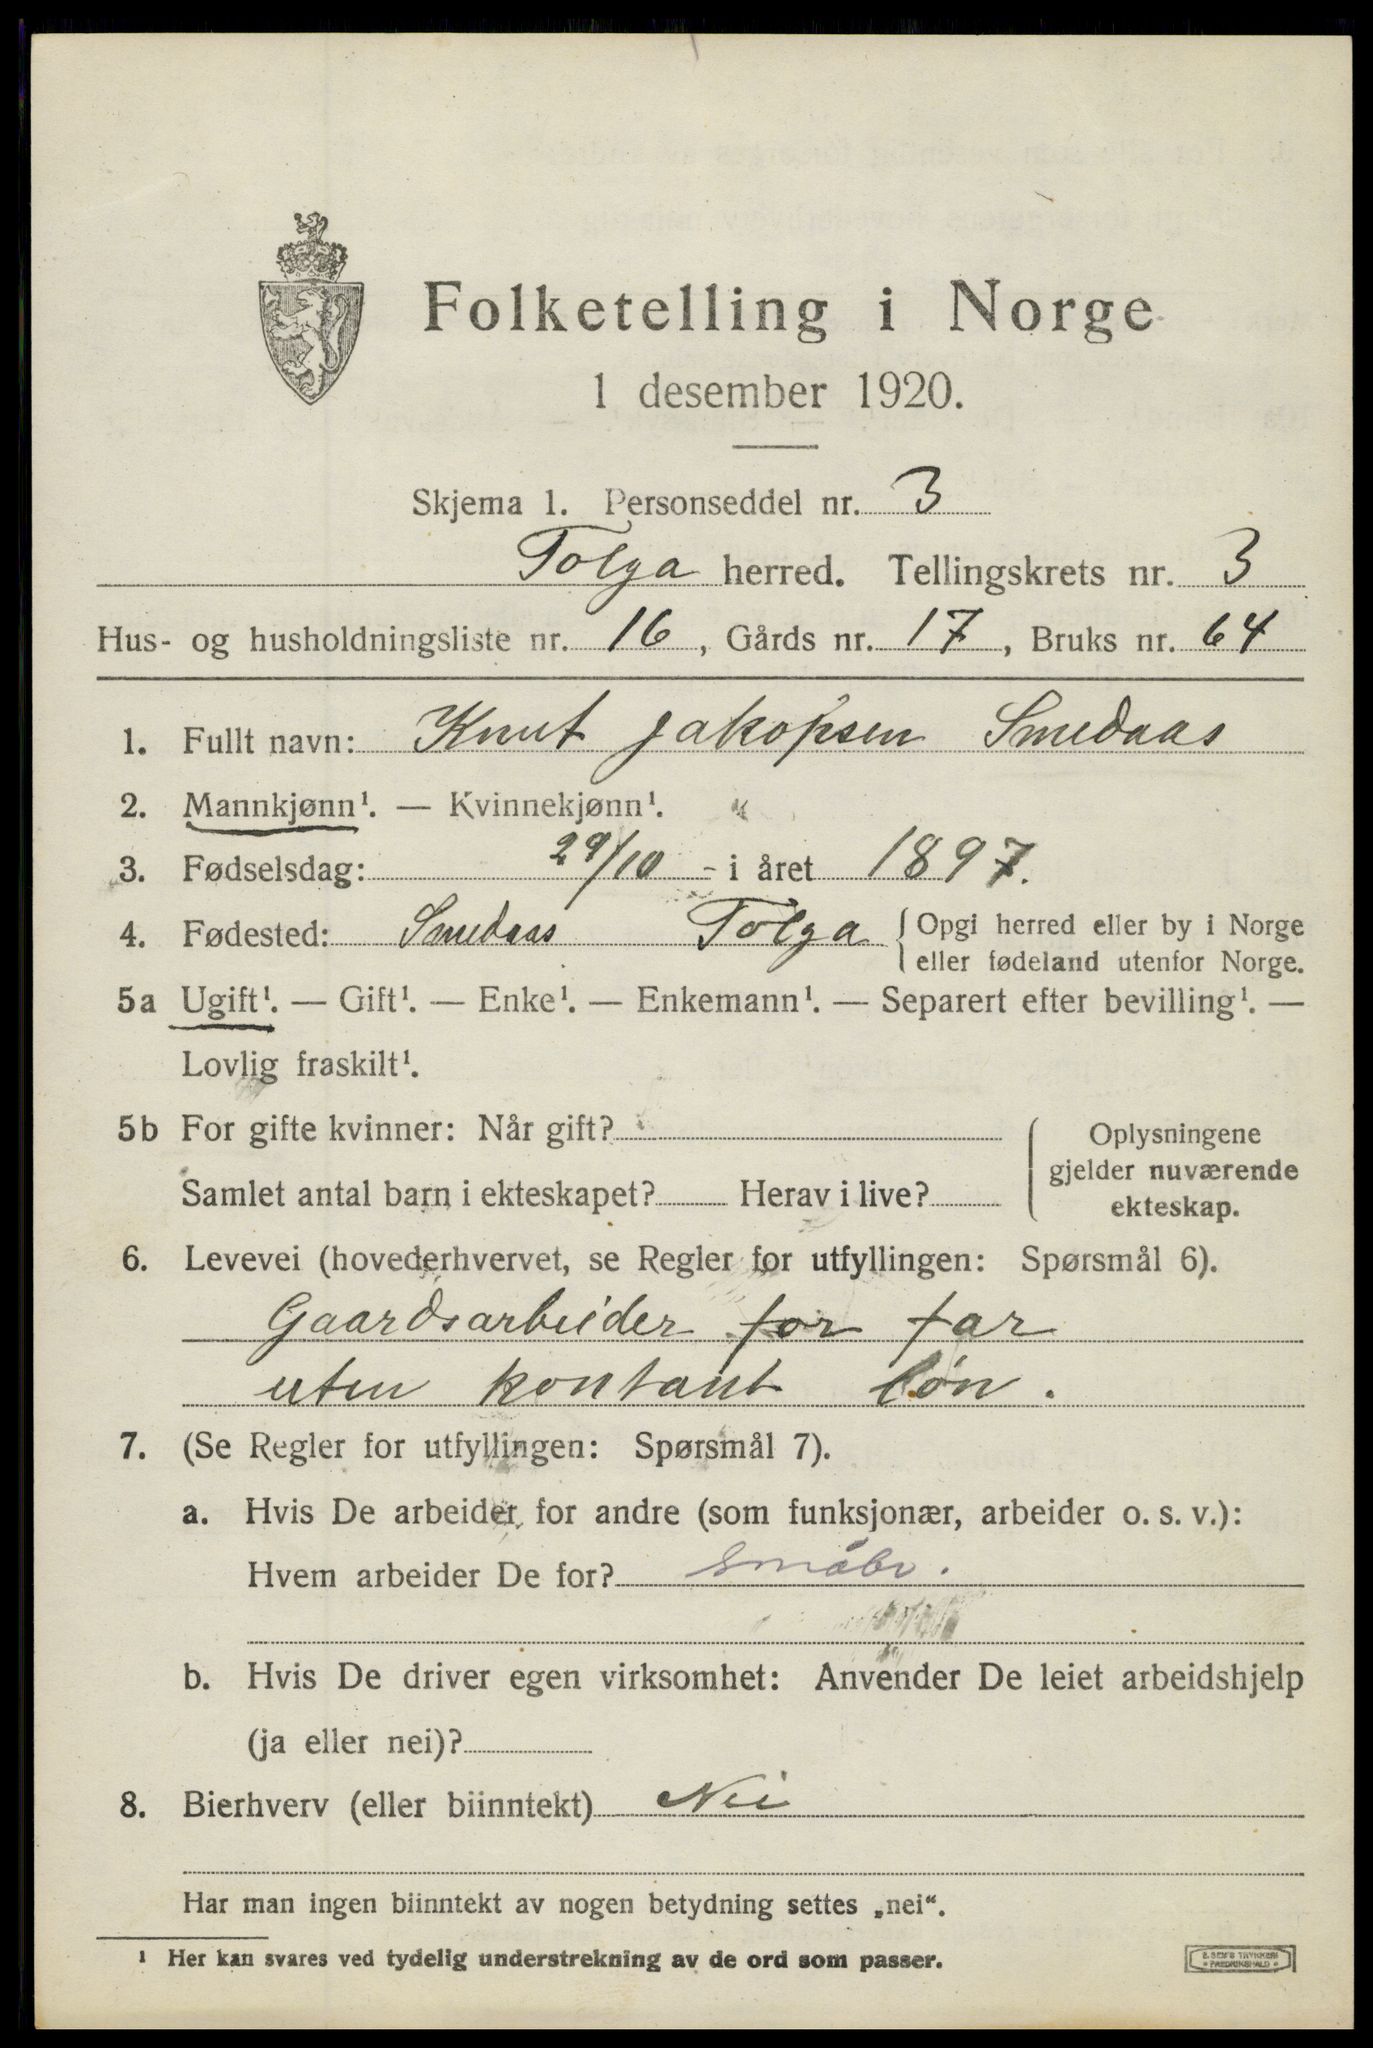 Folketelling i Norge
1 desember 1920.
Skjema 1. Personseddel nr. 3
Tolga herred. Tellingskrets nr. 3
Hus- og husholdningsliste nr. 16, Gårds nr. 17, Bruks nr. 64
1. Fullt navn: Knut Jakopsen Smedaas
2. Mannkjønn¹. — Kvinnekjønn¹.
3. Fødselsdag: 29/10 - i året 1897.
4. Fødested: Smedaas Tolga { Opgi herred eller by i Norge
eller fødeland utenfor Norge.
5a Ugift¹. — Gift¹. — Enke¹. — Enkemann¹. — Separert efter bevilling¹. —
Lovlig fraskilt¹.
5b For gifte kvinner: Når gift?
Samlet antal barn i ekteskapet? Herav i live?
Oplysningene
gjelder nuværende
ekteskap.
6. Levevei (hovederhvervet, se Regler for utfyllingen: Spørsmål 6).
Gaardsarbeider for far
uten kontant løn.
7. (Se Regler for utfyllingen: Spørsmål 7).
a. Hvis De arbeider for andre (som funksjonær, arbeider o. s. v.):
Hvem arbeider De for? Småbr.
b. Hvis De driver egen virksomhet: Anvender De leiet arbeidshjelp
(ja eller nei)?
8. Bierhverv (eller biinntekt) Nei
Har man ingen biinntekt av nogen betydning settes „nei“.
¹ Her kan svares ved tydelig understrekning av de ord som passer.
E. SEM'S TRYKKERI
FREDRIKSHALD